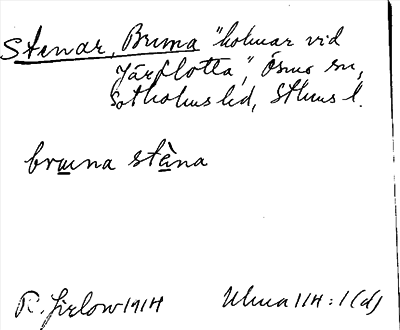 Stenar, Bruna "holmar vid
Järflotta", Ösmo sn,
Sotholms hd, Sthms l.
bruna stèna
R. Jirlow 1914
Ulma 114:1(d)